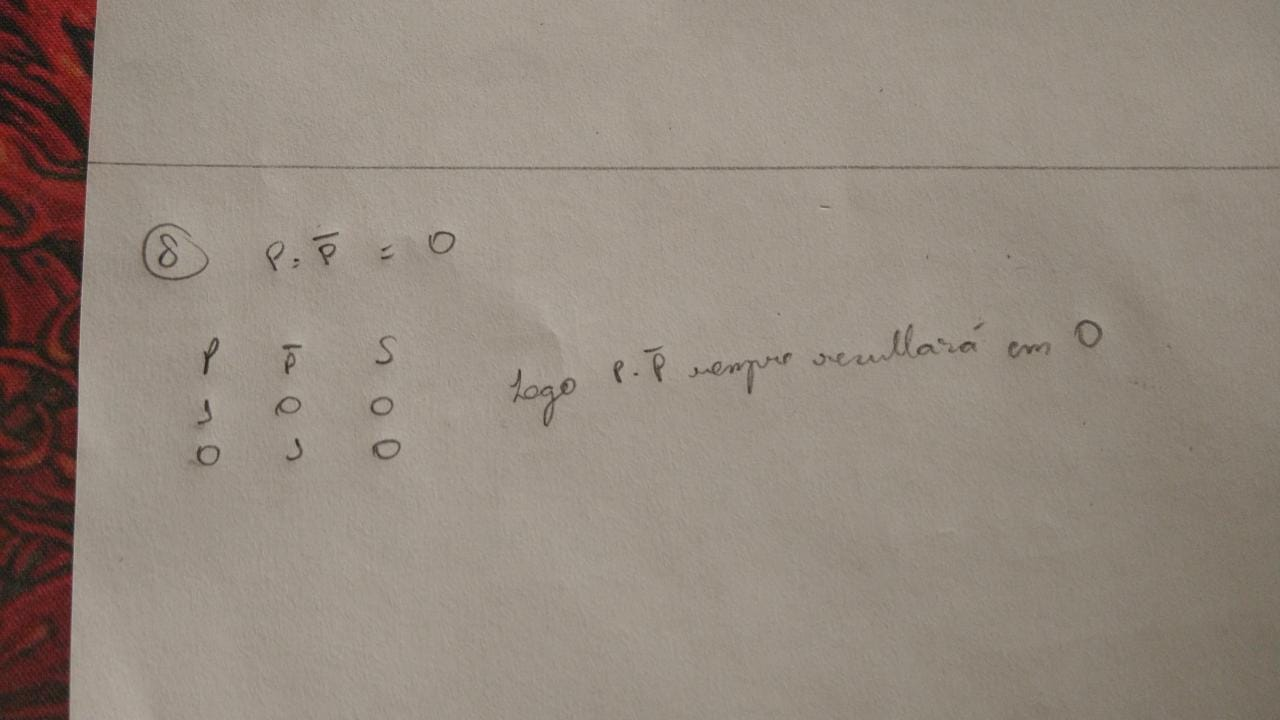 8 P . P̅ = 0
P P̅ S
1 0 0
0 1 0
Logo P . P̅ sempre resultará em 0